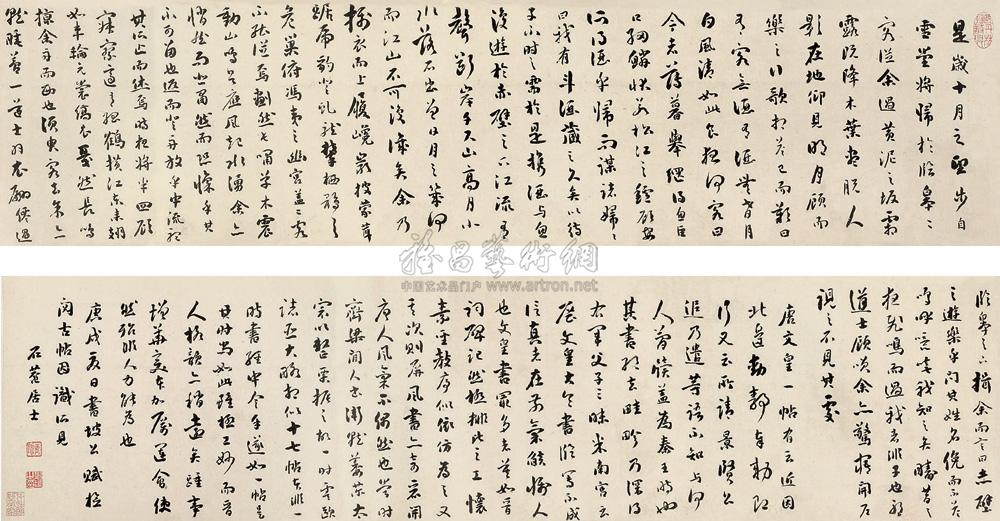 是歲十月之望步自
雪堂將歸於臨皋二
客從余過黃泥之坂霜
露既降木葉盡脫人
影在地仰見明月顧而
樂之行歌相答已而歎曰
有客無酒有酒無肴月
白風清如此良夜何客曰
今者薄暮舉網得魚巨
口細鱗狀如松江之鱸顧安
所得酒乎歸而謀諸婦婦
曰我有斗酒藏之久矣以待
子不時之需於是攜酒與魚
復遊於赤壁之下江流有
聲斷岸千尺山高月小
水落石出曾日月之幾何
而江山不可復識矣余乃
攝衣而上履巉巖披蒙茸
踞虎豹登虬龍攀栖鶻之
危巢俯馮夷之幽宮蓋二客
不能從焉劃然長嘯草木震
動山鳴谷應風起水湧余亦
悄然而悲肅然而恐凜乎其
不可留也返而登舟放乎中流聽
其所止而休焉時夜將半四顧
寂寥適有孤鶴橫江東來翅
如車輪玄裳縞衣戛然長鳴
掠余舟而西也須臾客去余亦
就睡夢一道士羽衣翩僊過
臨皋之下揖余而言曰赤壁
之遊樂乎問其姓名俛而不答
嗚呼噫嘻我知之矣疇昔之
夜飛鳴而過我者非子也耶
道士顧笑余亦驚悟開戶
視之不見其處
唐文皇一帖有云近因
北邊動靜奉勅即
行又云所請景賢公
追乃遣等語不知與何
人首牘蓋為秦王時也
其書都去畦畛乃深得
右軍父子三昧米南宮云
歷文皇大令書臨寫不成
信真者在前氣燄懾人
也文皇書最多者莫如晉
詞碑記然極排比之工懷
素聖教序似依仿為之又
其次則屏風書亦奇宏開
唐人風氣不佻然也當時
齊梁間人書衰颯蕭索太
宗以整栗振之故一時虞歐
諸公大略相似十七帖在非
時書經中令手遂如一帖
其時尚如此臨極工妙而晉
人極韻亦稍盡矣雖本
增華變本加厲運會使
然殆非人力能為也
庚戌夏日書坡公賦檢
閱古帖因識所見
石菴居士
雅昌藝術網
中国艺术品门户 www.artron.net